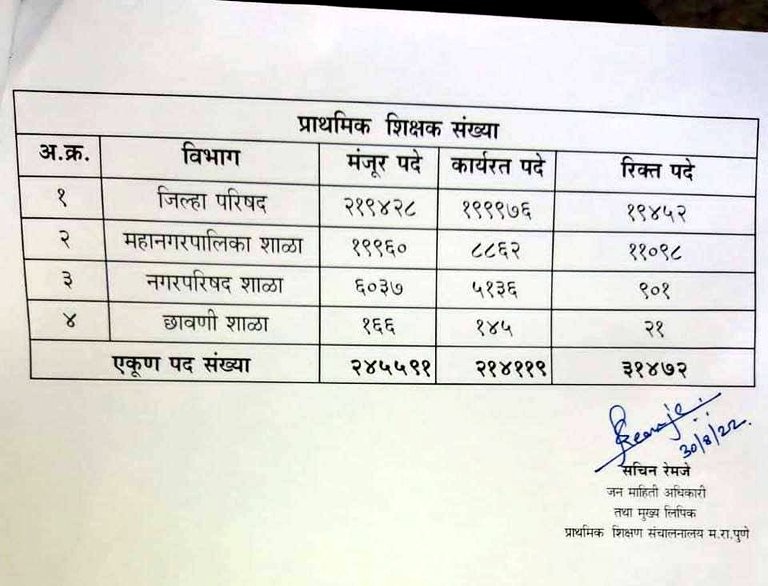 प्राथमिक शिक्षक संख्या
अ.क्र. विभाग मंजूर पदे कार्यरत पदे रिक्त पदे
१ जिल्हा परिषद २१९४२८ १९९९७६ १९४५२
२ महानगरपालिका शाळा १९९६० ८८६२ ११०९८
३ नगरपरिषद शाळा ६०३७ ५१३६ ९०१
४ छावणी शाळा १६६ १४५ २१
एकूण पद संख्या २४५५९१ २१४११९ ३१४७२
30/8/22.
सचिन रेमजे
जन माहिती अधिकारी
तथा मुख्य लिपिक
प्राथमिक शिक्षण संचालनालय म.रा.पुणे